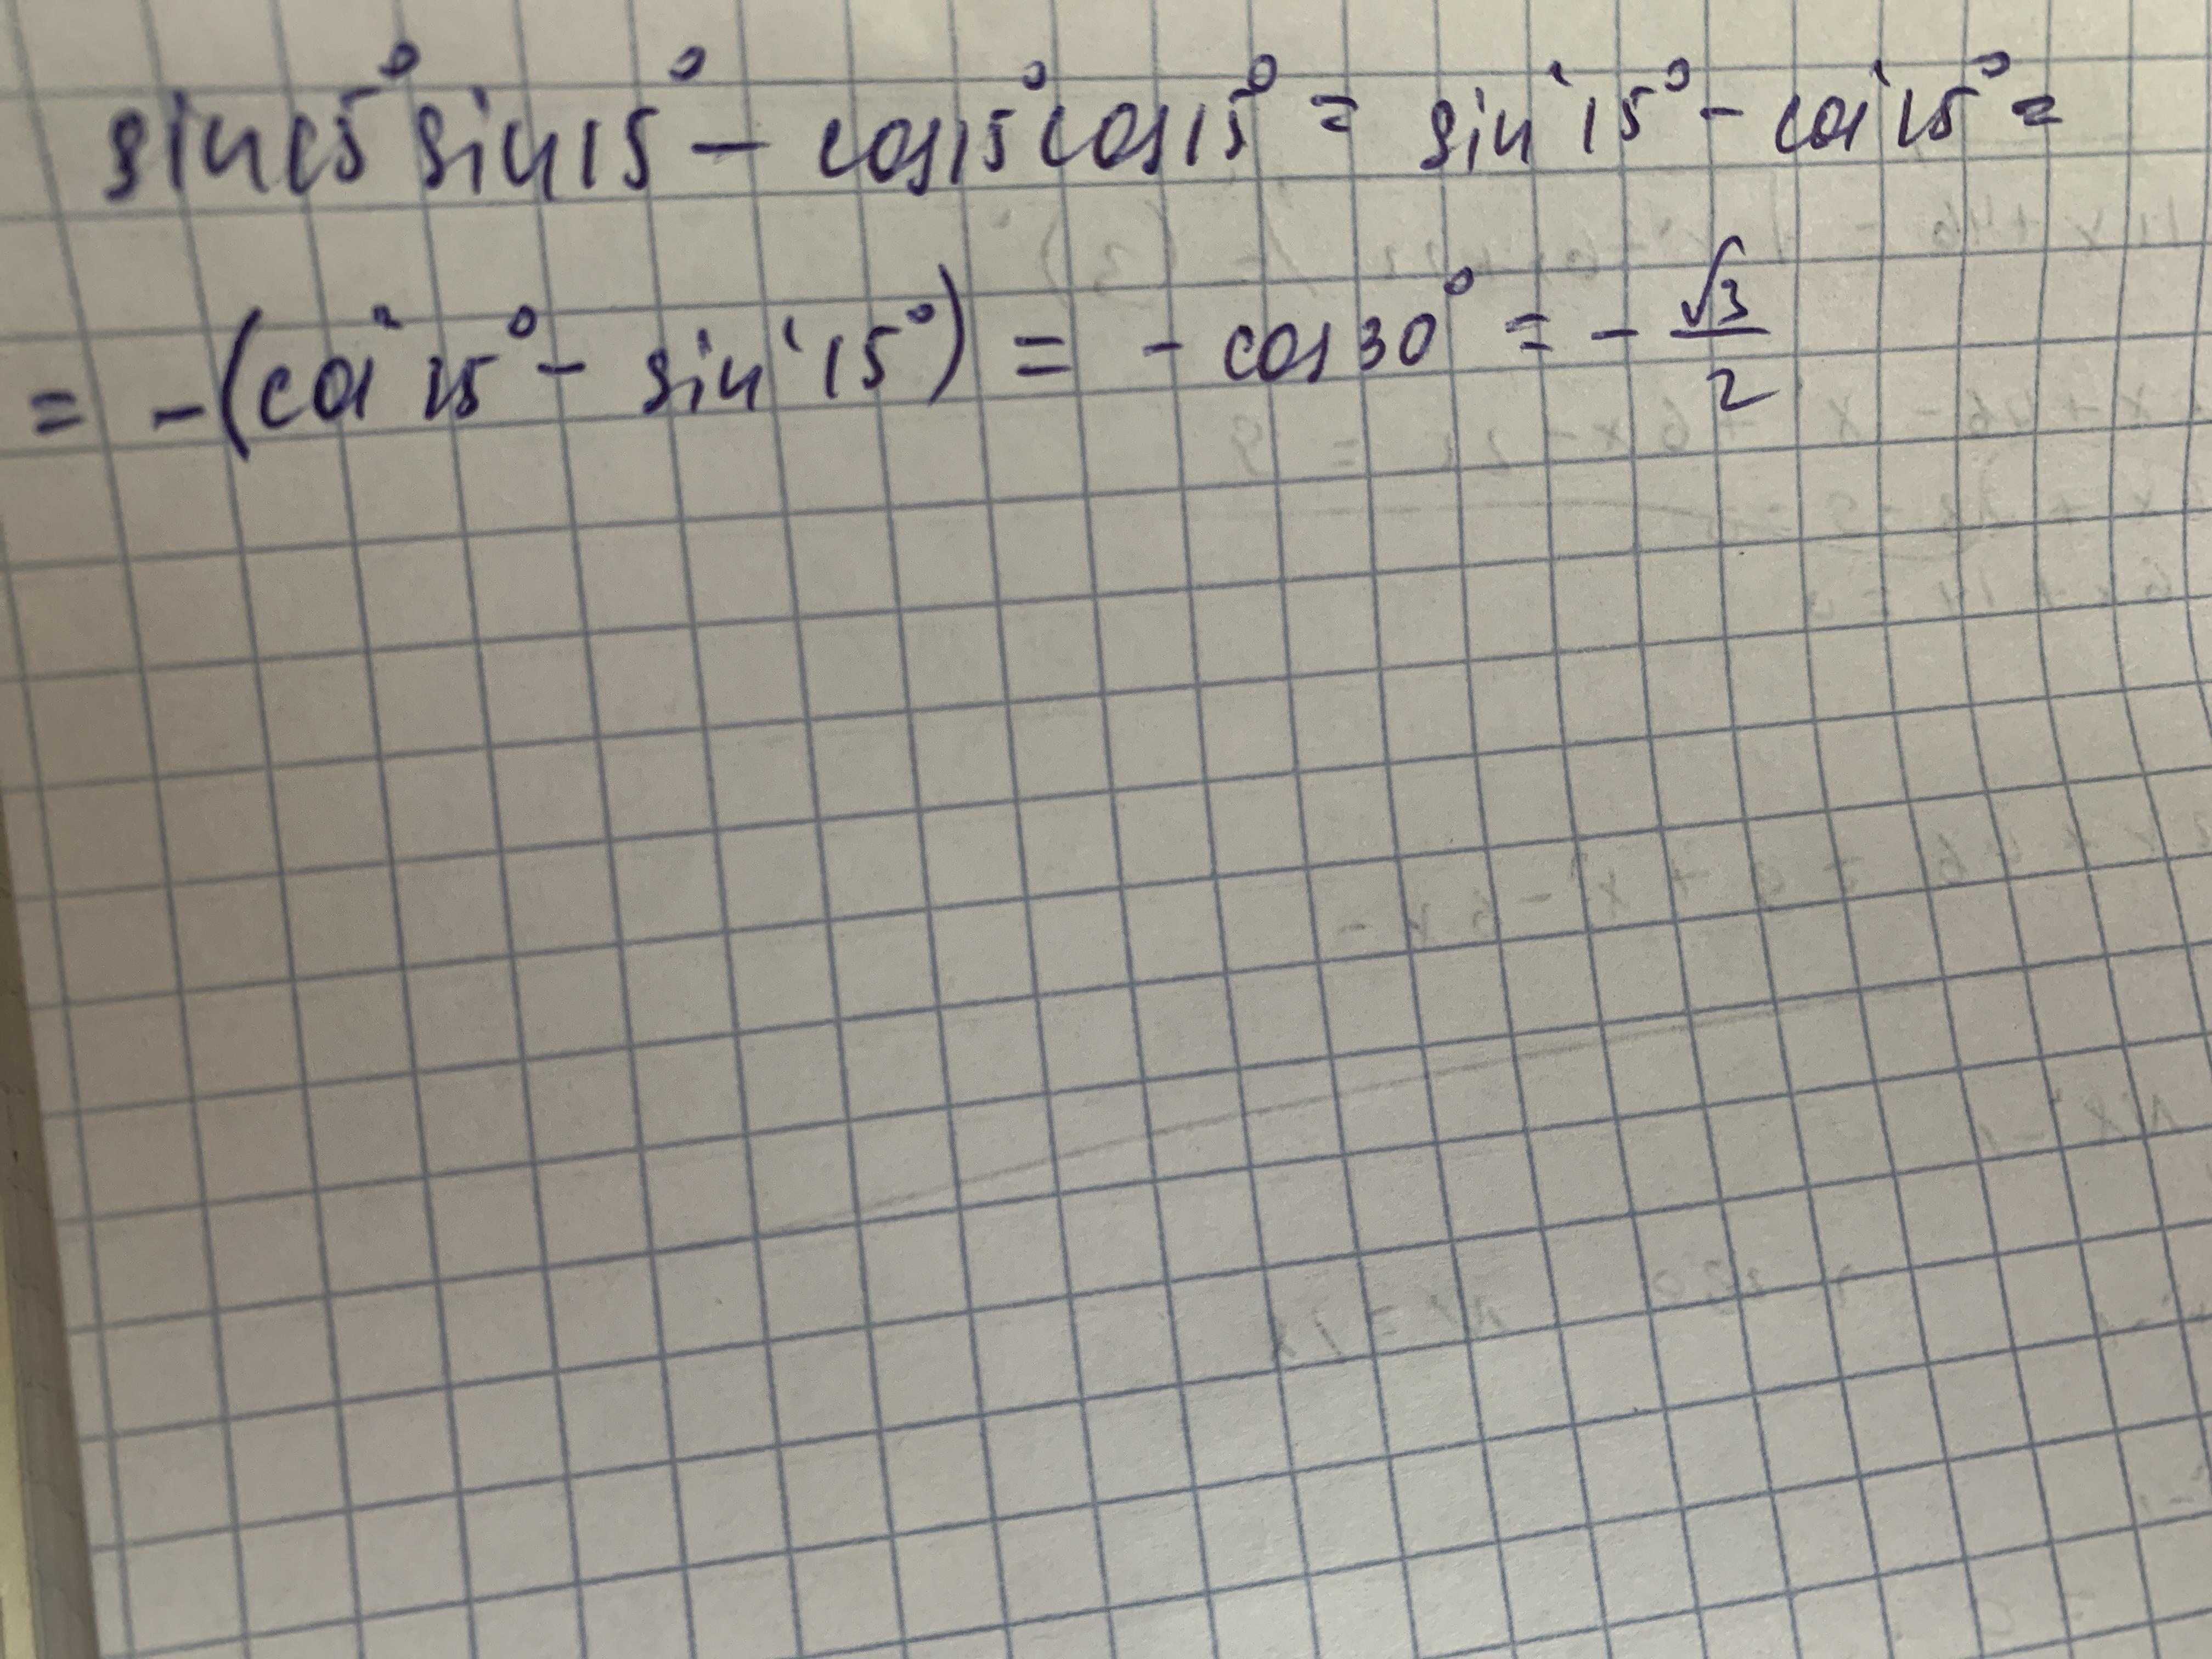 sin15° sin15° - cos15° cos15° = sin²15° - cos²15° =
= -(cos²15° - sin²15°) = -cos30° = -√3/2